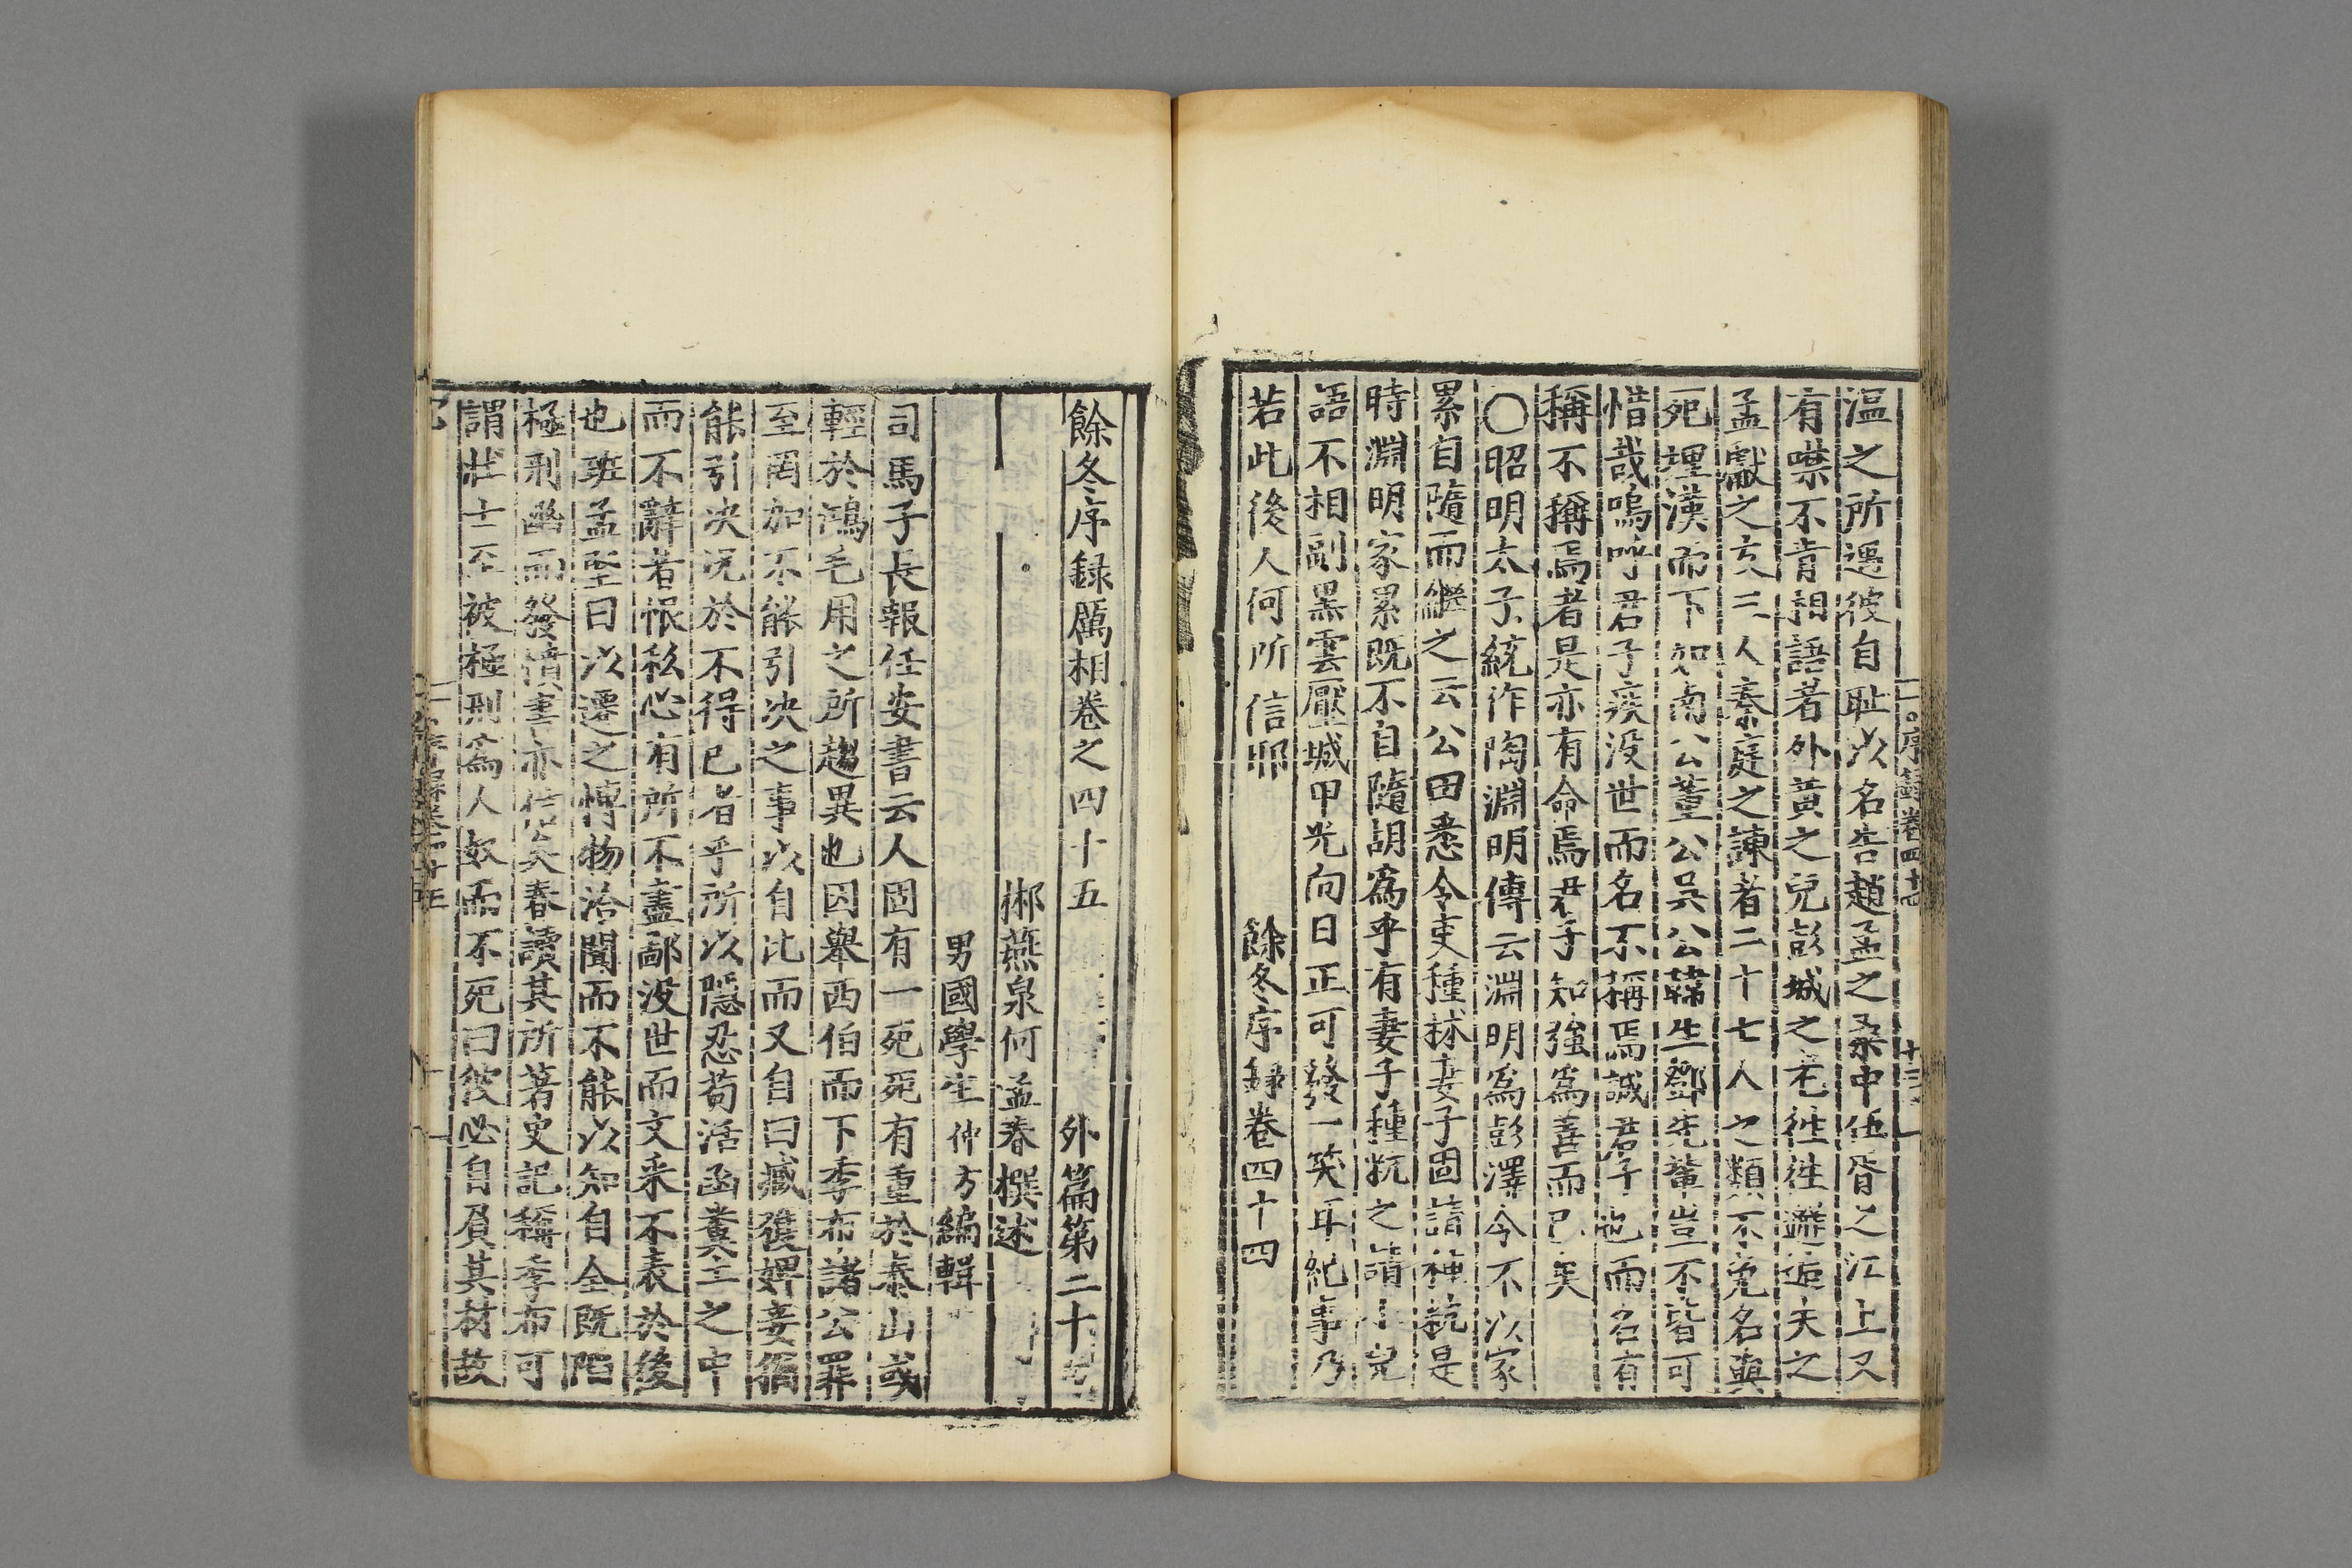 温之所遇彼自耻以名告趙孟之桑中伍胥之江上又
有噤不肯相語者外黄之兒彭城之老徃徃邂逅天之
孟獻之友三人秦庭之諫者二十七人之類不免名與
死埋漢而下如南公董公呉公韓生鄧先軰豈不皆可
惜哉嗚呼君子疾没世而名不稱焉誠君子也而名有
稱不稱焉者是亦有命焉君子知強為善而已矣
○昭明太子統作陶淵明傳云淵明為彭澤令不以家
累自隨而繼之云公田悉令吏種秫妻子固請種秔是
時淵明家累既不自隨胡為乎有妻子種秔之請小説
語不相副黒雲壓城甲光向日正可發一笑耳紀事乃
若此後人何所信耶
餘冬序録卷四十四
序録卷四十四
十三
餘冬序録厲相卷之四十五
外篇第二十
郴燕泉何孟春撰述
男國學生仲方編輯
司馬子長報任安書云人固有一死死有重於泰山或
輕於鴻毛用之所趨異也因舉西伯而下季布諸公罪
至罔加不能引决之事以自比而又自曰臧獲婢妾猶
能引决况於不得已者乎所以隱忍苟活函糞土之中
而不辭者恨私心有所不盡鄙没世而文采不表於後
也班孟堅曰以遷之博物洽聞而不能以知自全既陷
極刑幽而發憤書亦信矣春讀其所著史記稱季布可
謂壮士至被極刑為人奴而不死曰彼必自負其材故